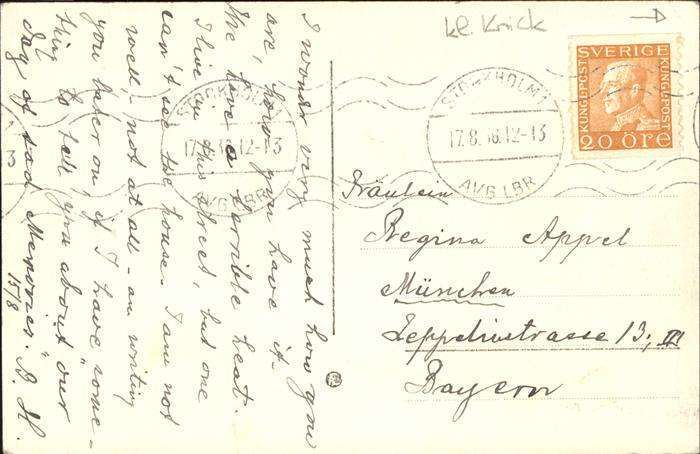 I wonder very much how you
are, how you have it.
We have a terrible heat.
I live in this street, but one
can't see the house. I am not
well, not at all - am writing
you later on, if I have "some-
thing" to tell you about our
day of sad Memories. B. H.
15/8
kl. Knick
SVERIGE
KUNGL. POST
KUNGL. POST
20 ÖRE
STOCKHOLM 1
17.8.36.12-13
AVG LBR
STOCKHOLM 1
17.8.36.12-13
AVG LBR
3
Fräulein
Regina Appel
München
Zeppelinstrasse 13, III
Bayern